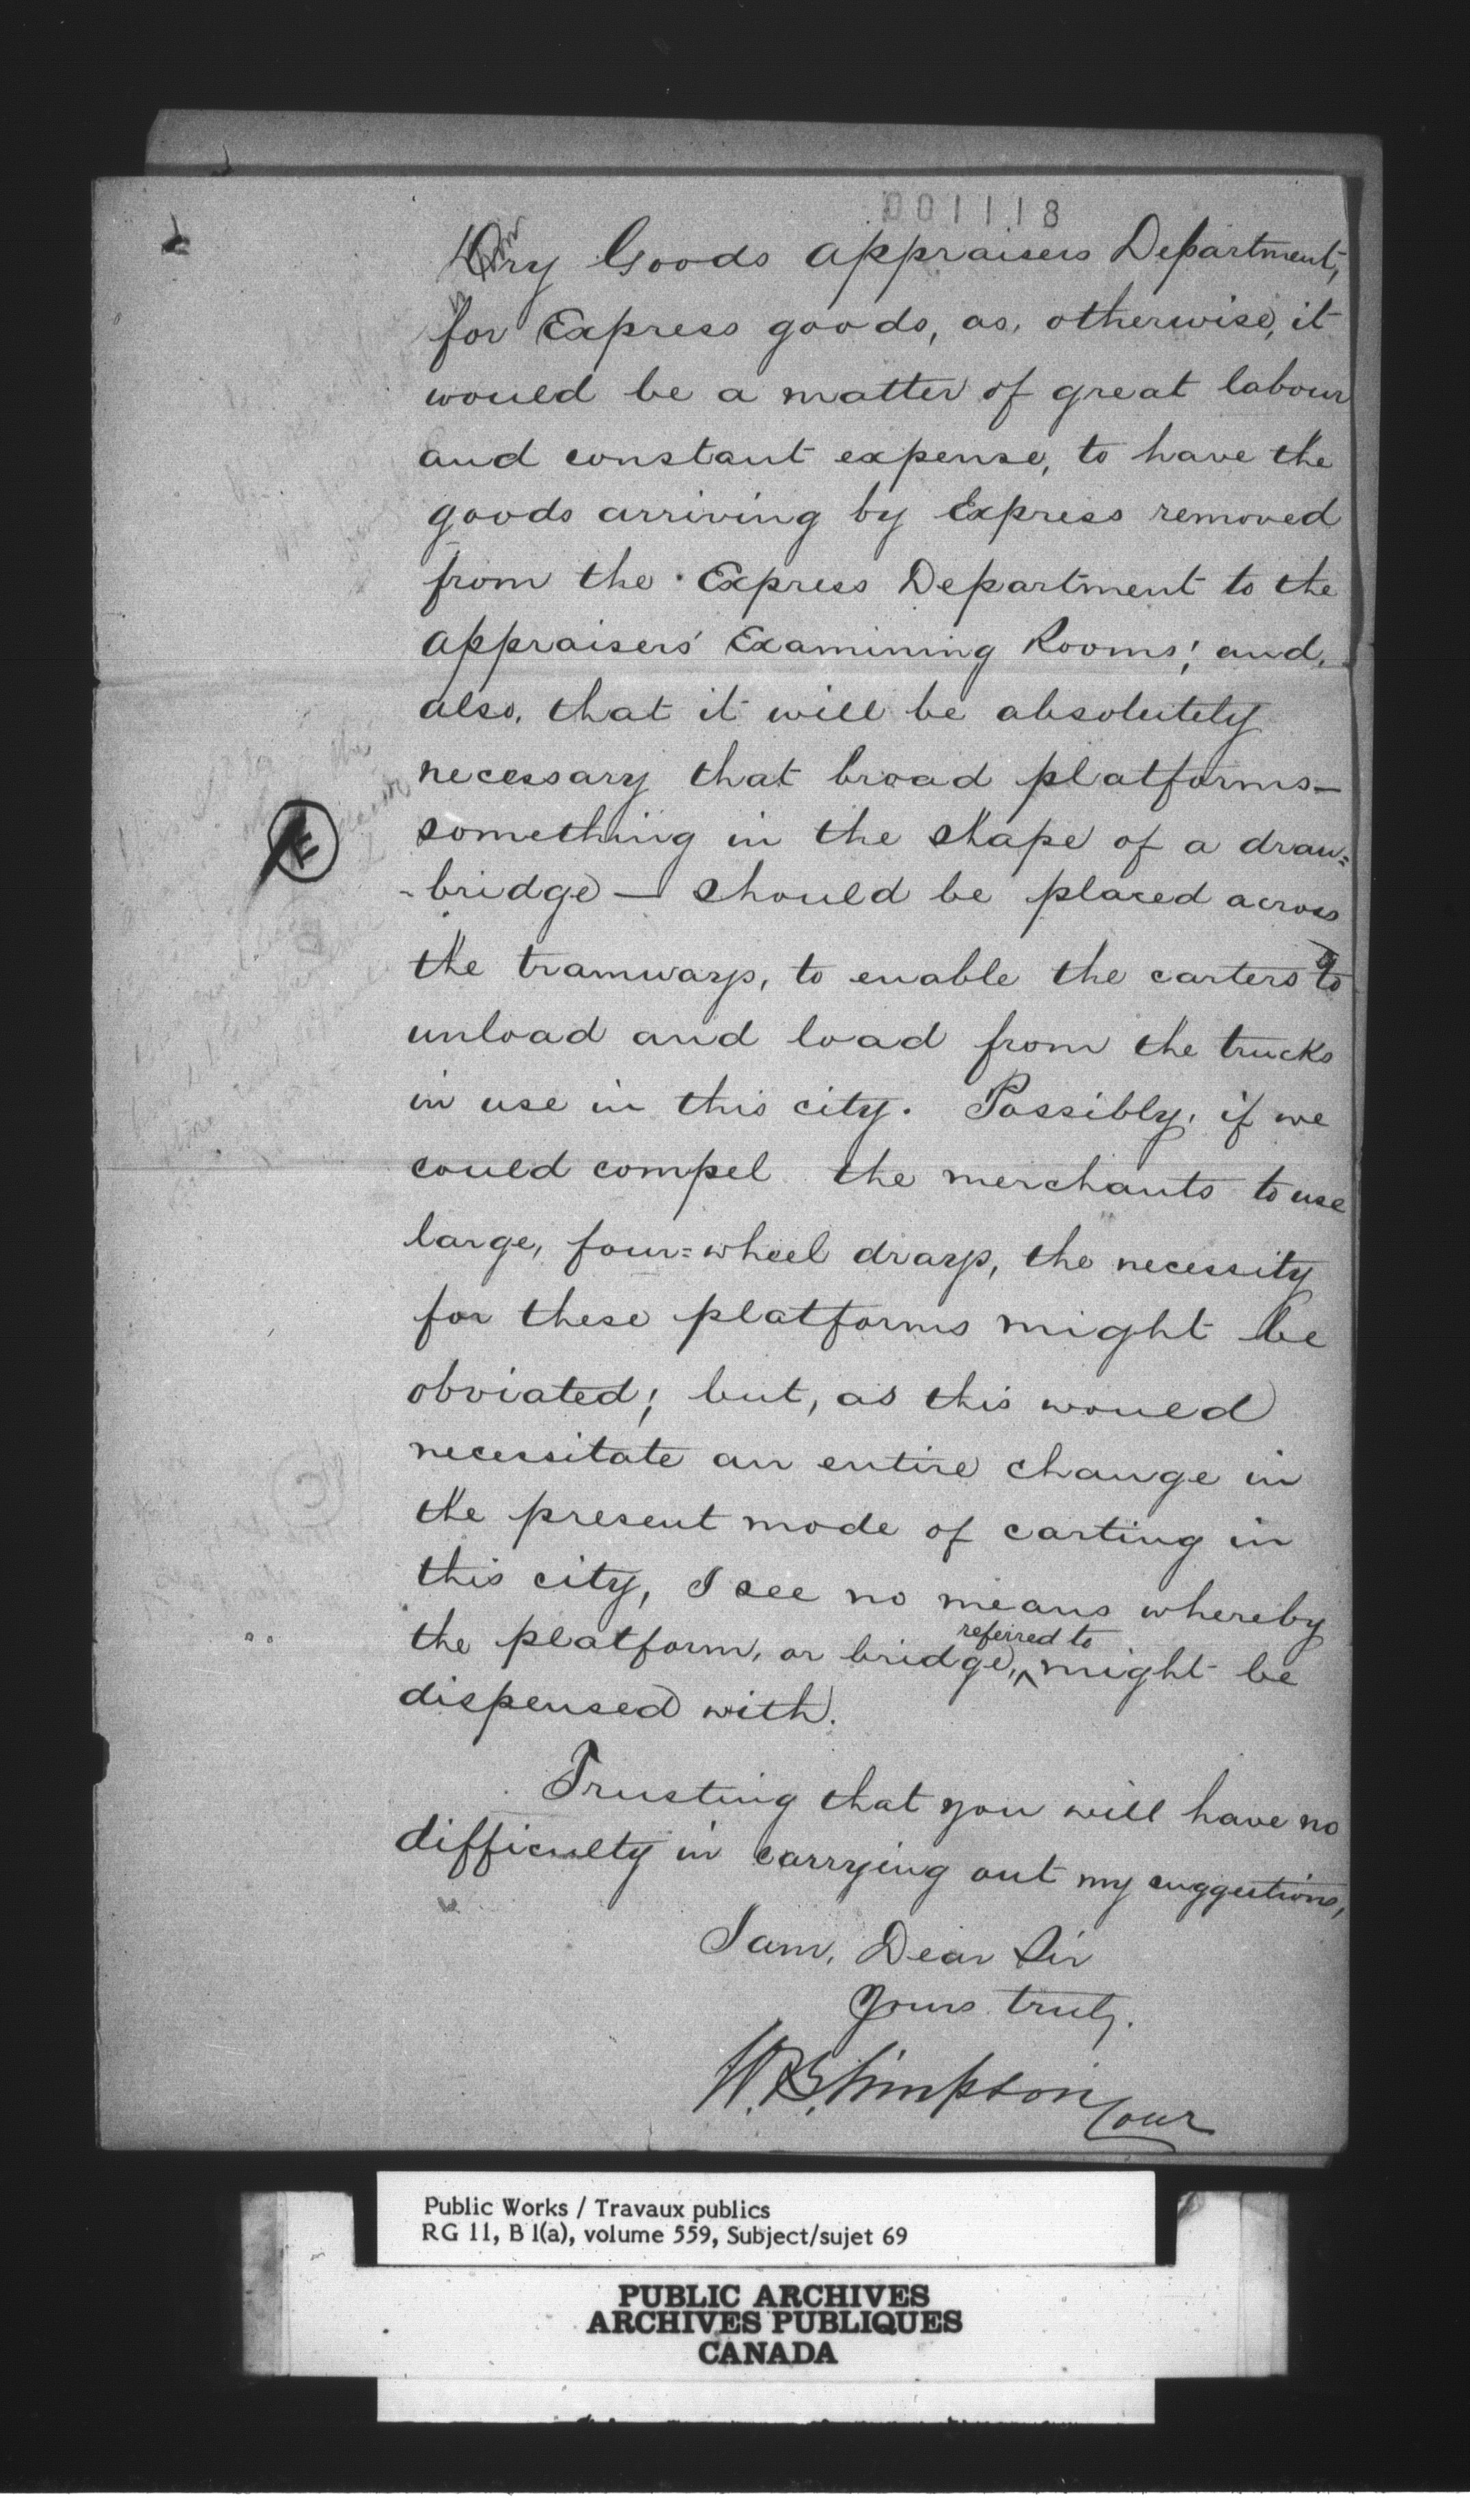 001118
Dry Goods Appraisers Department,
for Express goods, as, otherwise, it
would be a matter of great labour
and constant expense, to have the
goods arriving by Express removed
from the Express Department to the
Appraisers' Examining Rooms; and,
also, that it will be absolutely
necessary that broad platforms—
something in the shape of a draw=
-bridge — should be placed across
the tramways, to enable the carters to
unload and load from the trucks
in use in this city. Possibly, if we
could compel the merchants to use
large, four=wheel drays, the necessity
for these platforms might be
obviated; but, as this would
necessitate an entire change in
the present mode of carting in
this city, I see no means whereby
the platform, or bridge, referred to might be
dispensed with.
Trusting that you will have no
difficulty in carrying out my suggestions,
I am, Dear Sir
Yours truly.
W. B. Simpson
Public Works / Travaux publics
RG 11, B 1(a), volume 559, Subject/sujet 69
PUBLIC ARCHIVES
ARCHIVES PUBLIQUES
CANADA